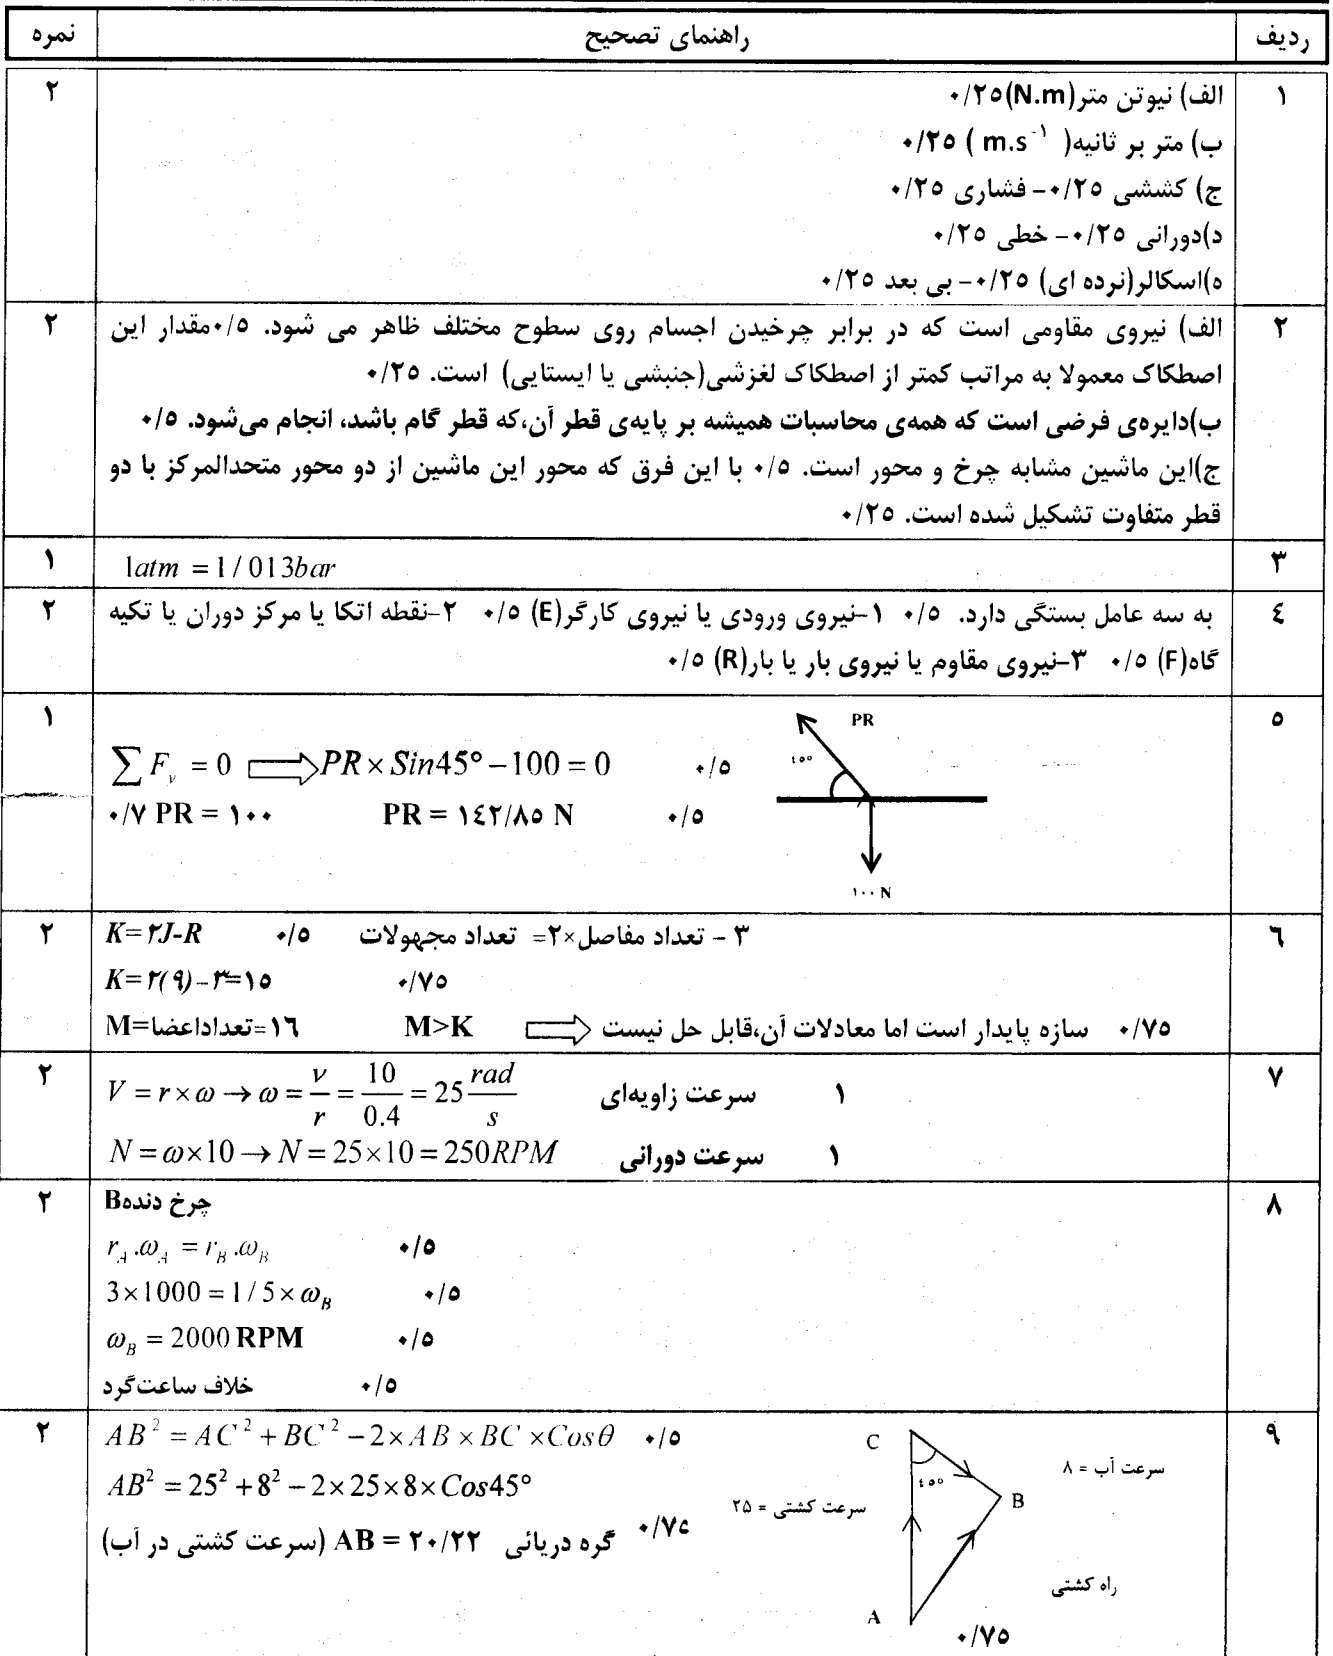 ردیف راهنمای تصحیح نمره
۱ الف) نیوتن متر(N.m)۰/۲۵ ۲
ب) متر بر ثانیه( m.s⁻¹ ) ۰/۲۵
ج) کششی ۰/۲۵- فشاری ۰/۲۵
د)دورانی ۰/۲۵- خطی ۰/۲۵
ه)اسکالر(نرده ای) ۰/۲۵- بی بعد ۰/۲۵
۲ الف) نیروی مقاومی است که در برابر چرخیدن اجسام روی سطوح مختلف ظاهر می شود. ۰/۵مقدار این ۲
اصطکاک معمولا به مراتب کمتر از اصطکاک لغزشی(جنبشی یا ایستایی) است. ۰/۲۵
ب)دایره‌ی فرضی است که همه‌ی محاسبات همیشه بر پایه‌ی قطر آن،که قطر گام باشد، انجام می‌شود. ۰/۵
ج)این ماشین مشابه چرخ و محور است. ۰/۵ با این فرق که محور این ماشین از دو محور متحدالمرکز با دو
قطر متفاوت تشکیل شده است. ۰/۲۵
۳ 1atm = 1/013bar ۱
٤ به سه عامل بستگی دارد. ۰/۵ ۱-نیروی ورودی یا نیروی کارگر(E) ۰/۵ ۲-نقطه اتکا یا مرکز دوران یا تکیه ۲
گاه(F) ۰/۵ ۳-نیروی مقاوم یا نیروی بار یا بار(R) ۰/۵
۵ ۱
PR
٤٥°
∑F_y = 0 ⇒ PR × Sin45° – 100 = 0 ۰/۵
۰/۷ PR = ۱۰۰ PR = ۱٤۲/۸۵ N ۰/۵
۱۰۰ N
٦ K=۲J-R ۰/۵ تعداد مجهولات =۲×تعداد مفاصل - ۳ ۲
K=۲(۹)-۳=۱۵ ۰/۷۵
M=تعداداعضا=۱٦ M>K ⇐ سازه پایدار است اما معادلات آن،قابل حل نیست ۰/۷۵
۷ V = r × ω → ω = v/r = 10/0.4 = 25 rad/s سرعت زاویه‌ای ۱ ۲
N = ω×10 → N = 25×10 = 250RPM سرعت دورانی ۱
۸ چرخ دندهB ۲
r_A.ω_A = r_B.ω_B ۰/۵
3×1000 = 1/5×ω_B ۰/۵
ω_B = 2000 RPM ۰/۵
خلاف ساعت‌گرد ۰/۵
۹ AB² = AC² + BC² – 2×AB×BC×Cosθ ۰/۵ ۲
AB² = 25² + 8² – 2×25×8×Cos45°
(سرعت کشتی در آب) AB = ۲۰/۲۲ گره دریائی ۰/۷۵
C
سرعت آب = ۸
٤٥°
B
سرعت کشتی = ۲۵
راه کشتی
A
۰/۷۵